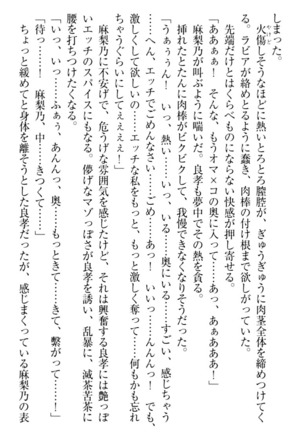 しまった。
火傷しそうなほどに熱いとろとろ膣腔が、ぎゅうぎゅうに肉茎全体を締めつけてくる。ラビアが絡めとるように蠢き、肉棒の付け根まで欲しがっていた。
先端だけとはくらべものにならない快感が押し寄せる。
「ああぁぁ！　そんな、もうオマ×コの奥に入って……あっ、あぁあああ！」
麻梨乃が叫ぶように喘いだ。良孝も夢中でその熱を貪る。
挿れたとたんに肉棒がビクビクして、我慢できなくなりそうだった。
「あんんっ！　いいっ……いる……奥にいる……すごい、感じちゃう……へん、エッチでごめんなさい……ごめ……あっ！　いいっ……んんんっ！　でも、激しくして欲しいの……エッチな私をもっと、もっと激しく奪って……何もかも忘れちゃうぐらいにしてぇぇぇぇ！」
麻梨乃に不安げで、危うげな雰囲気を感じたけど、それは興奮する良孝との甘いエッチのスパイスにもなる。儚げなマゾっぽさが良孝を誘い、乱暴に、滅茶苦茶に腰を打ちつけたくなる。
「いいっ……いっ……ふぁぁ、あんんっ、奥……もっときて……きて、繋がって……！」
「待っ……！　麻梨乃、中……きつくて……」
ちょっと緩めてと身体を離そうとした良孝だったが、感じまくっている麻梨乃の表